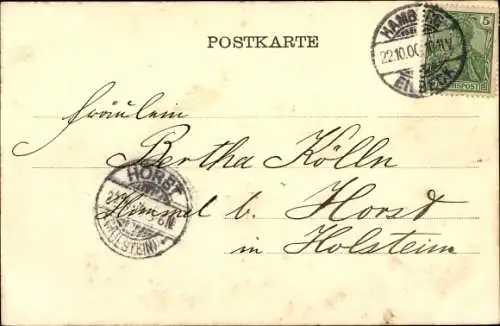 POSTKARTE
HAMBURG
22.10.00
EILBECK
5
REICHSPOST
Fräulein
Bertha Kölln
Himmel b. Horst
in Holstein
HORST
(HOLSTEIN)